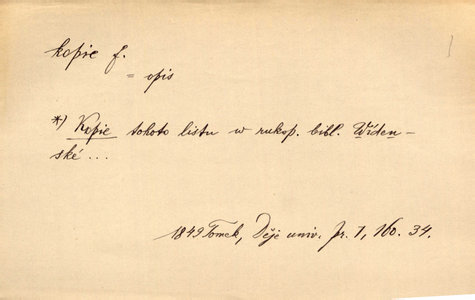 kopie f.
= opis
*) Kopie tohoto listu w rukop. bibl. Wíden-
ské ...
1849 Tomek, Děje univ. Pr. 1, 34.